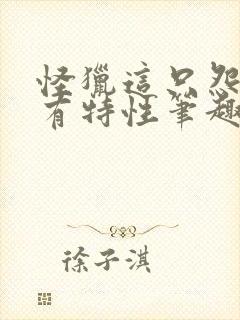 怪獵這只怨
有特性筆趣
徐子淇